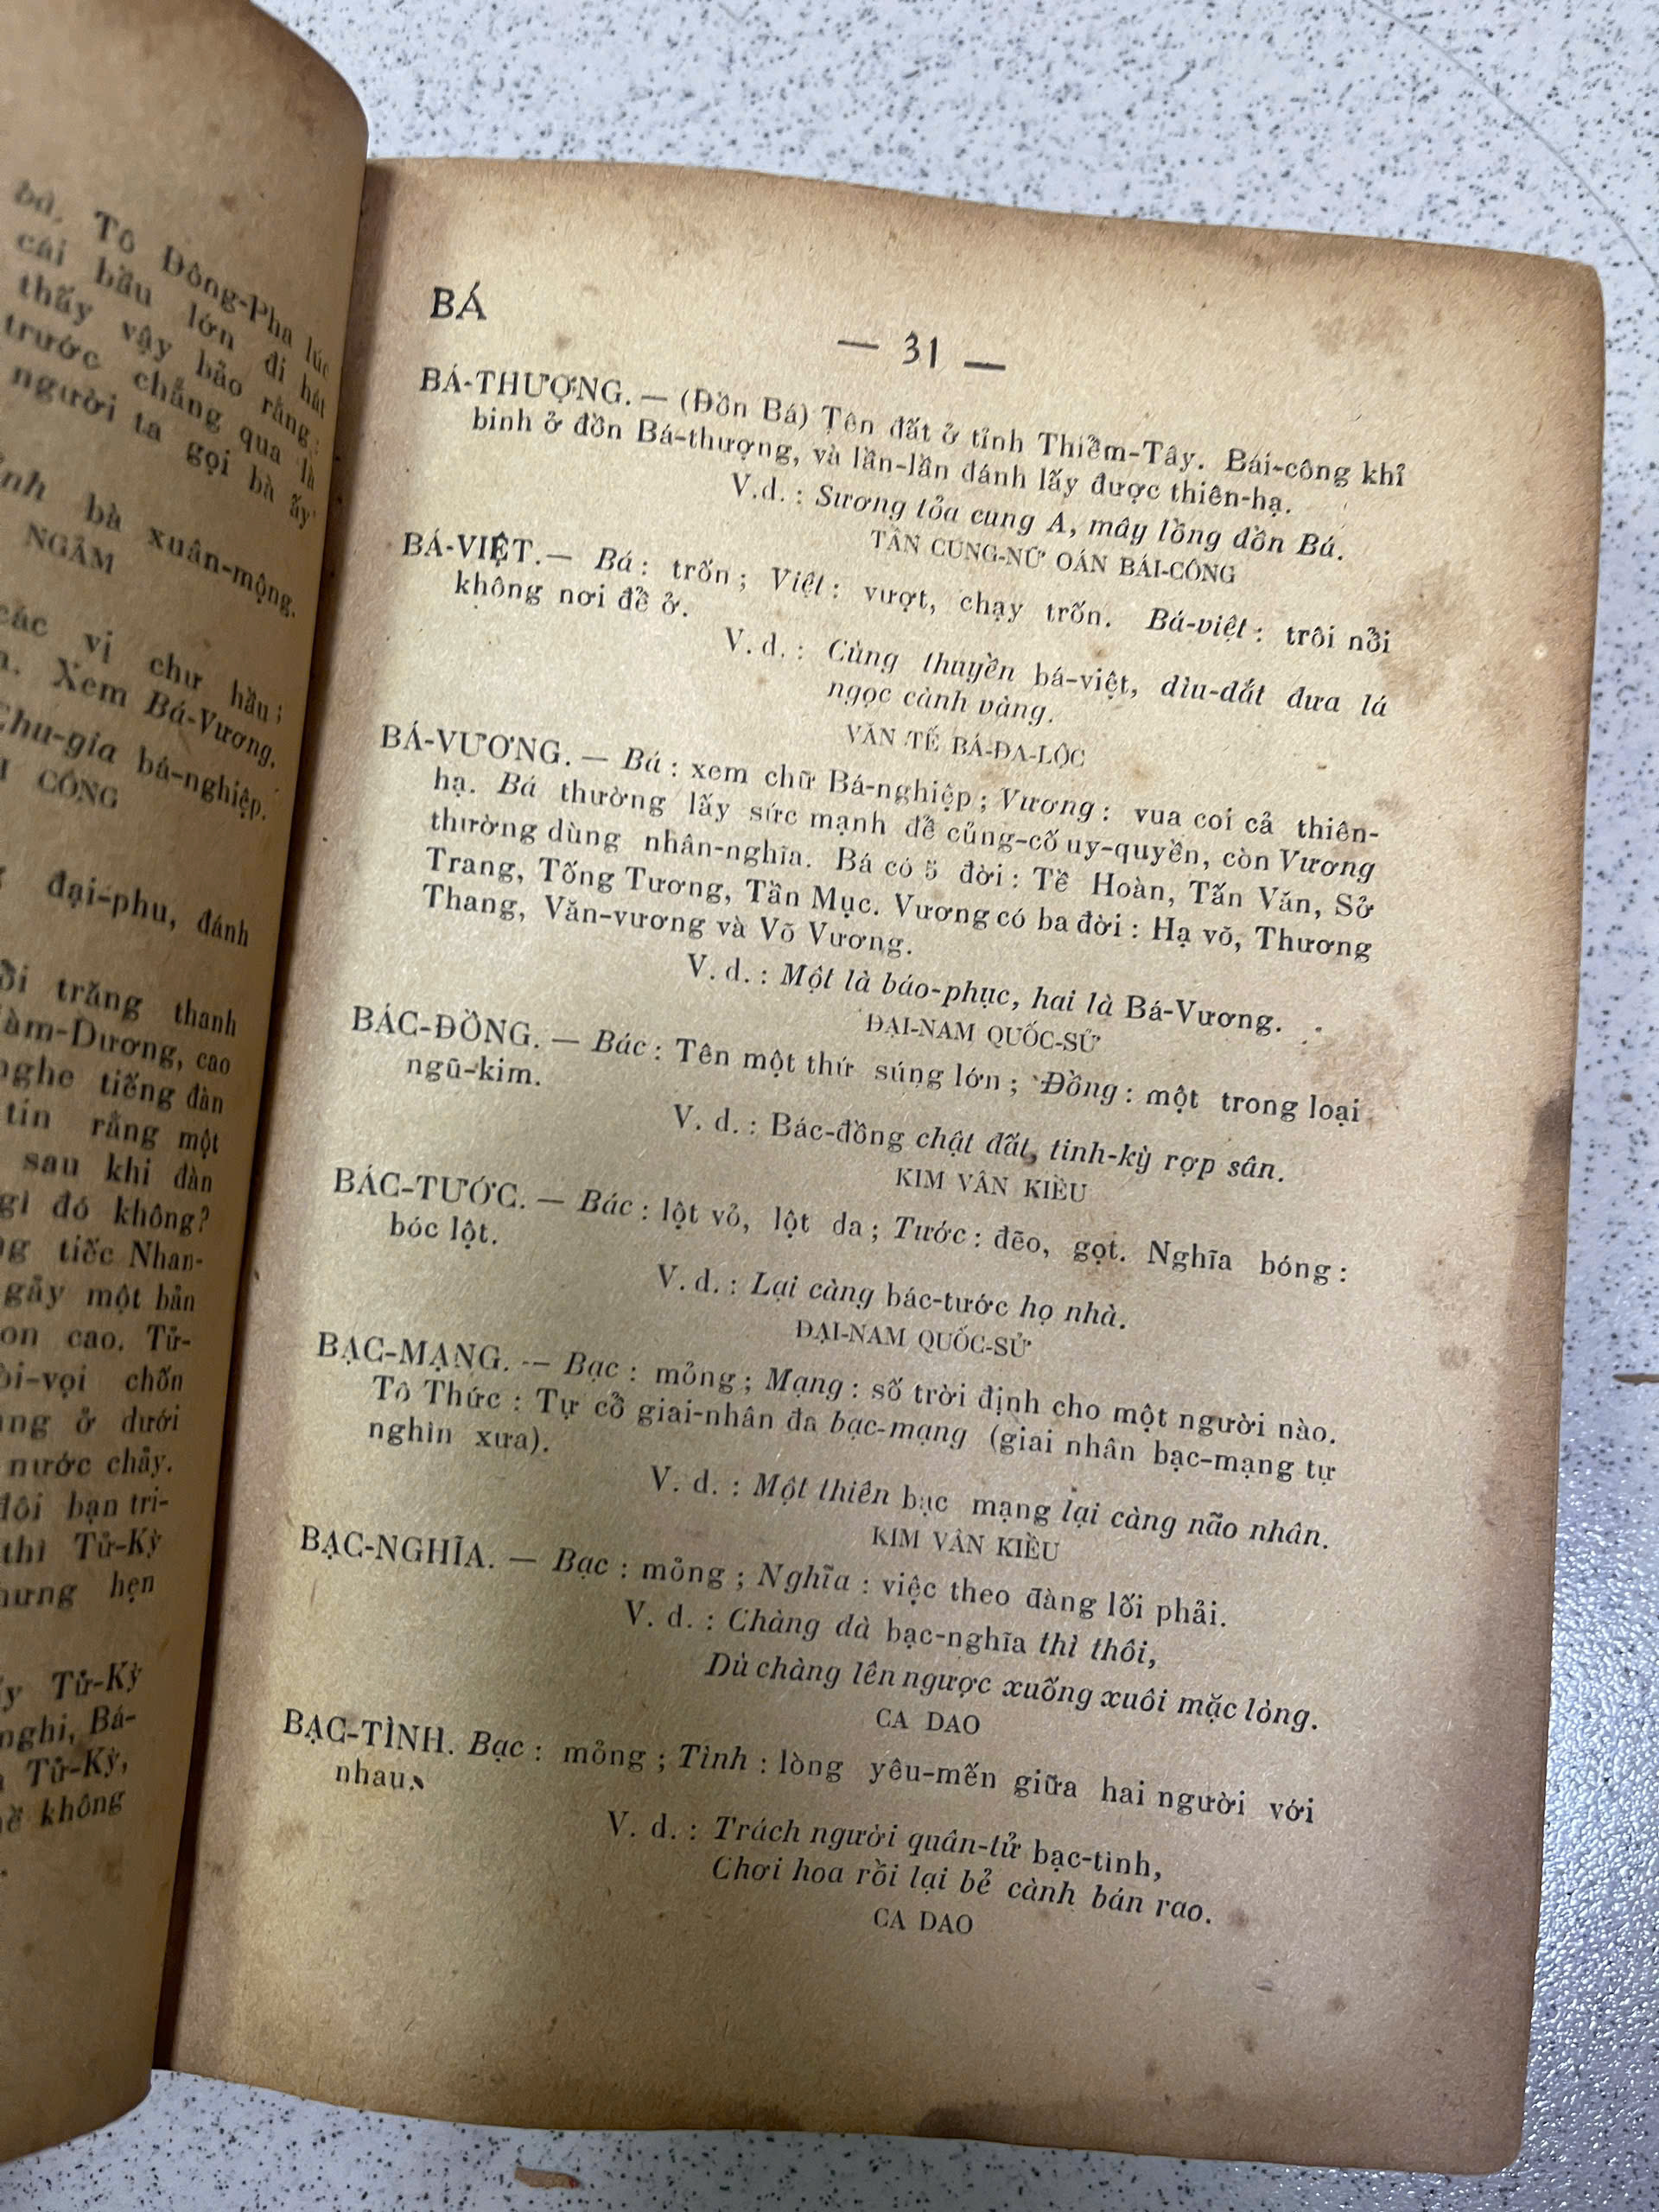 bá, Tô Đông-Pha lúc
cái bầu lớn đi hát
thấy vậy bảo rằng :
trước chẳng qua là
người ta gọi bà ấy
bà xuân-mộng.
NGÂM
các vị chư hầu ;
Xem Bá-Vương.
Chu-gia bá-nghiệp.
CÔNG
đại-phu, đánh
trăng thanh
Hàm-Dương, cao
nghe tiếng đàn
tin rằng một
sau khi đàn
gì đó không?
tiếc Nhan-
gảy một bản
non cao. Tử-
vòi-vọi chốn
ở dưới
nước chảy.
đôi bạn tri-
thì Tử-Kỳ
nhưng hẹn
Tử-Kỳ
nghi, Bá-
Tử-Kỳ,
không
BÁ
— 31 —
BÁ-THƯỢNG. — (Đồn Bá) Tên đất ở tỉnh Thiểm-Tây. Bái-công khỉ
binh ở đồn Bá-thượng, và lần-lần đánh lấy được thiên-hạ.
V.d. : Sương tỏa cung A, mây lồng đồn Bá.
TẦN CUNG-NỮ OÁN BÁI-CÔNG
BÁ-VIỆT. — Bá : trốn ; Việt : vượt, chạy trốn. Bá-việt : trôi nổi
không nơi để ở.
V. d. : Cùng thuyền bá-việt, dìu-dắt đưa lá
ngọc cành vàng.
VĂN TẾ BÁ-ĐA-LỘC
BÁ-VƯƠNG. — Bá : xem chữ Bá-nghiệp ; Vương : vua coi cả thiên-
hạ. Bá thường lấy sức mạnh để củng-cố uy-quyền, còn Vương
thường dùng nhân-nghĩa. Bá có 5 đời : Tề Hoàn, Tấn Văn, Sở
Trang, Tống Tương, Tần Mục. Vương có ba đời : Hạ võ, Thương
Thang, Văn-vương và Võ Vương.
V. d. : Một là báo-phục, hai là Bá-Vương.
ĐẠI-NAM QUỐC-SỬ
BÁC-ĐỒNG. — Bác : Tên một thứ súng lớn ; Đồng : một trong loại
ngũ-kim.
V. d. : Bác-đồng chật đất, tinh-kỳ rợp sân.
KIM VÂN KIỀU
BÁC-TƯỚC. — Bác : lột vỏ, lột da ; Tước : đẽo, gọt. Nghĩa bóng :
bóc lột.
V. d. : Lại càng bác-tước họ nhà.
ĐẠI-NAM QUỐC-SỬ
BẠC-MẠNG. — Bạc : mỏng ; Mạng : số trời định cho một người nào.
Tô Thức : Tự cổ giai-nhân đa bạc-mạng (giai nhân bạc-mạng tự
nghìn xưa).
V. d. : Một thiên bạc mạng lại càng não nhân.
KIM VÂN KIỀU
BẠC-NGHĨA. — Bạc : mỏng ; Nghĩa : việc theo đàng lối phải.
V. d. : Chàng dà bạc-nghĩa thì thôi,
Dù chàng lên ngược xuống xuôi mặc lòng.
CA DAO
BẠC-TÌNH. Bạc : mỏng ; Tình : lòng yêu-mến giữa hai người với
nhau.
V. d. : Trách người quân-tử bạc-tình,
Chơi hoa rồi lại bẻ cành bán rao.
CA DAO